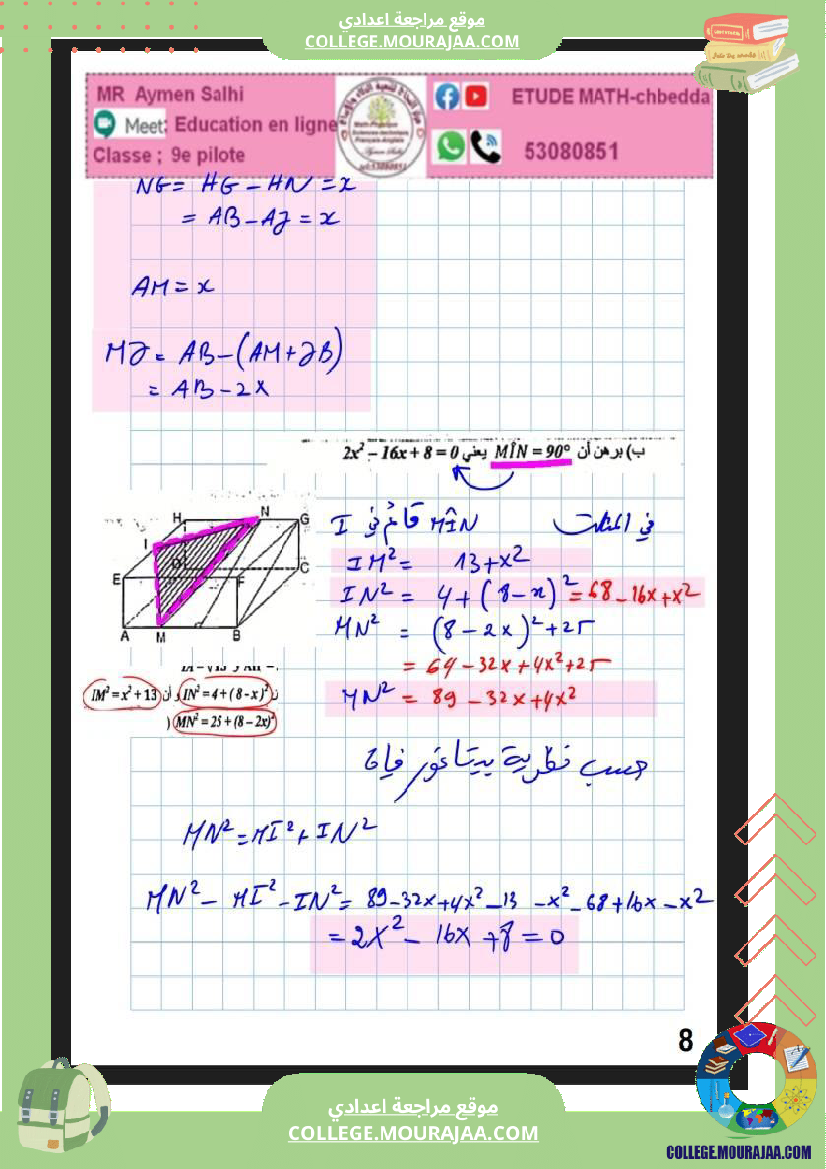 موقع مراجعة اعدادي
COLLEGE.MOURAJAA.COM
MR Aymen Salhi
Meet: Education en ligne
Classe ; 9e pilote
ETUDE MATH-chbedda
53080851
NG = HG - HN = x
= AB - AJ = x
AM = x
MJ = AB - (AM + JB)
= AB - 2x
ب) برهن أن MÎN = 90° يعني 2x² - 16x + 8 = 0
H N G
I
C
E F
A M B
في المثلث MÎN قائم في I
IM² = 13 + x²
IN² = 4 + (8 - x)² = 68 - 16x + x²
MN² = (8 - 2x)² + 25
= 64 - 32x + 4x² + 25
MN² = 89 - 32x + 4x²
IN² = 4 + (8 - x)² و أن IM² = x² + 13
MN² = 25 + (8 - 2x)²
حسب نظرية بيتاغور فإن
MN² = MI² + IN²
MN² - MI² - IN² = 89 - 32x + 4x² - 13 - x² - 68 + 16x - x²
= 2x² - 16x + 8 = 0
8
موقع مراجعة اعدادي
COLLEGE.MOURAJAA.COM
COLLEGE.MOURAJAA.COM